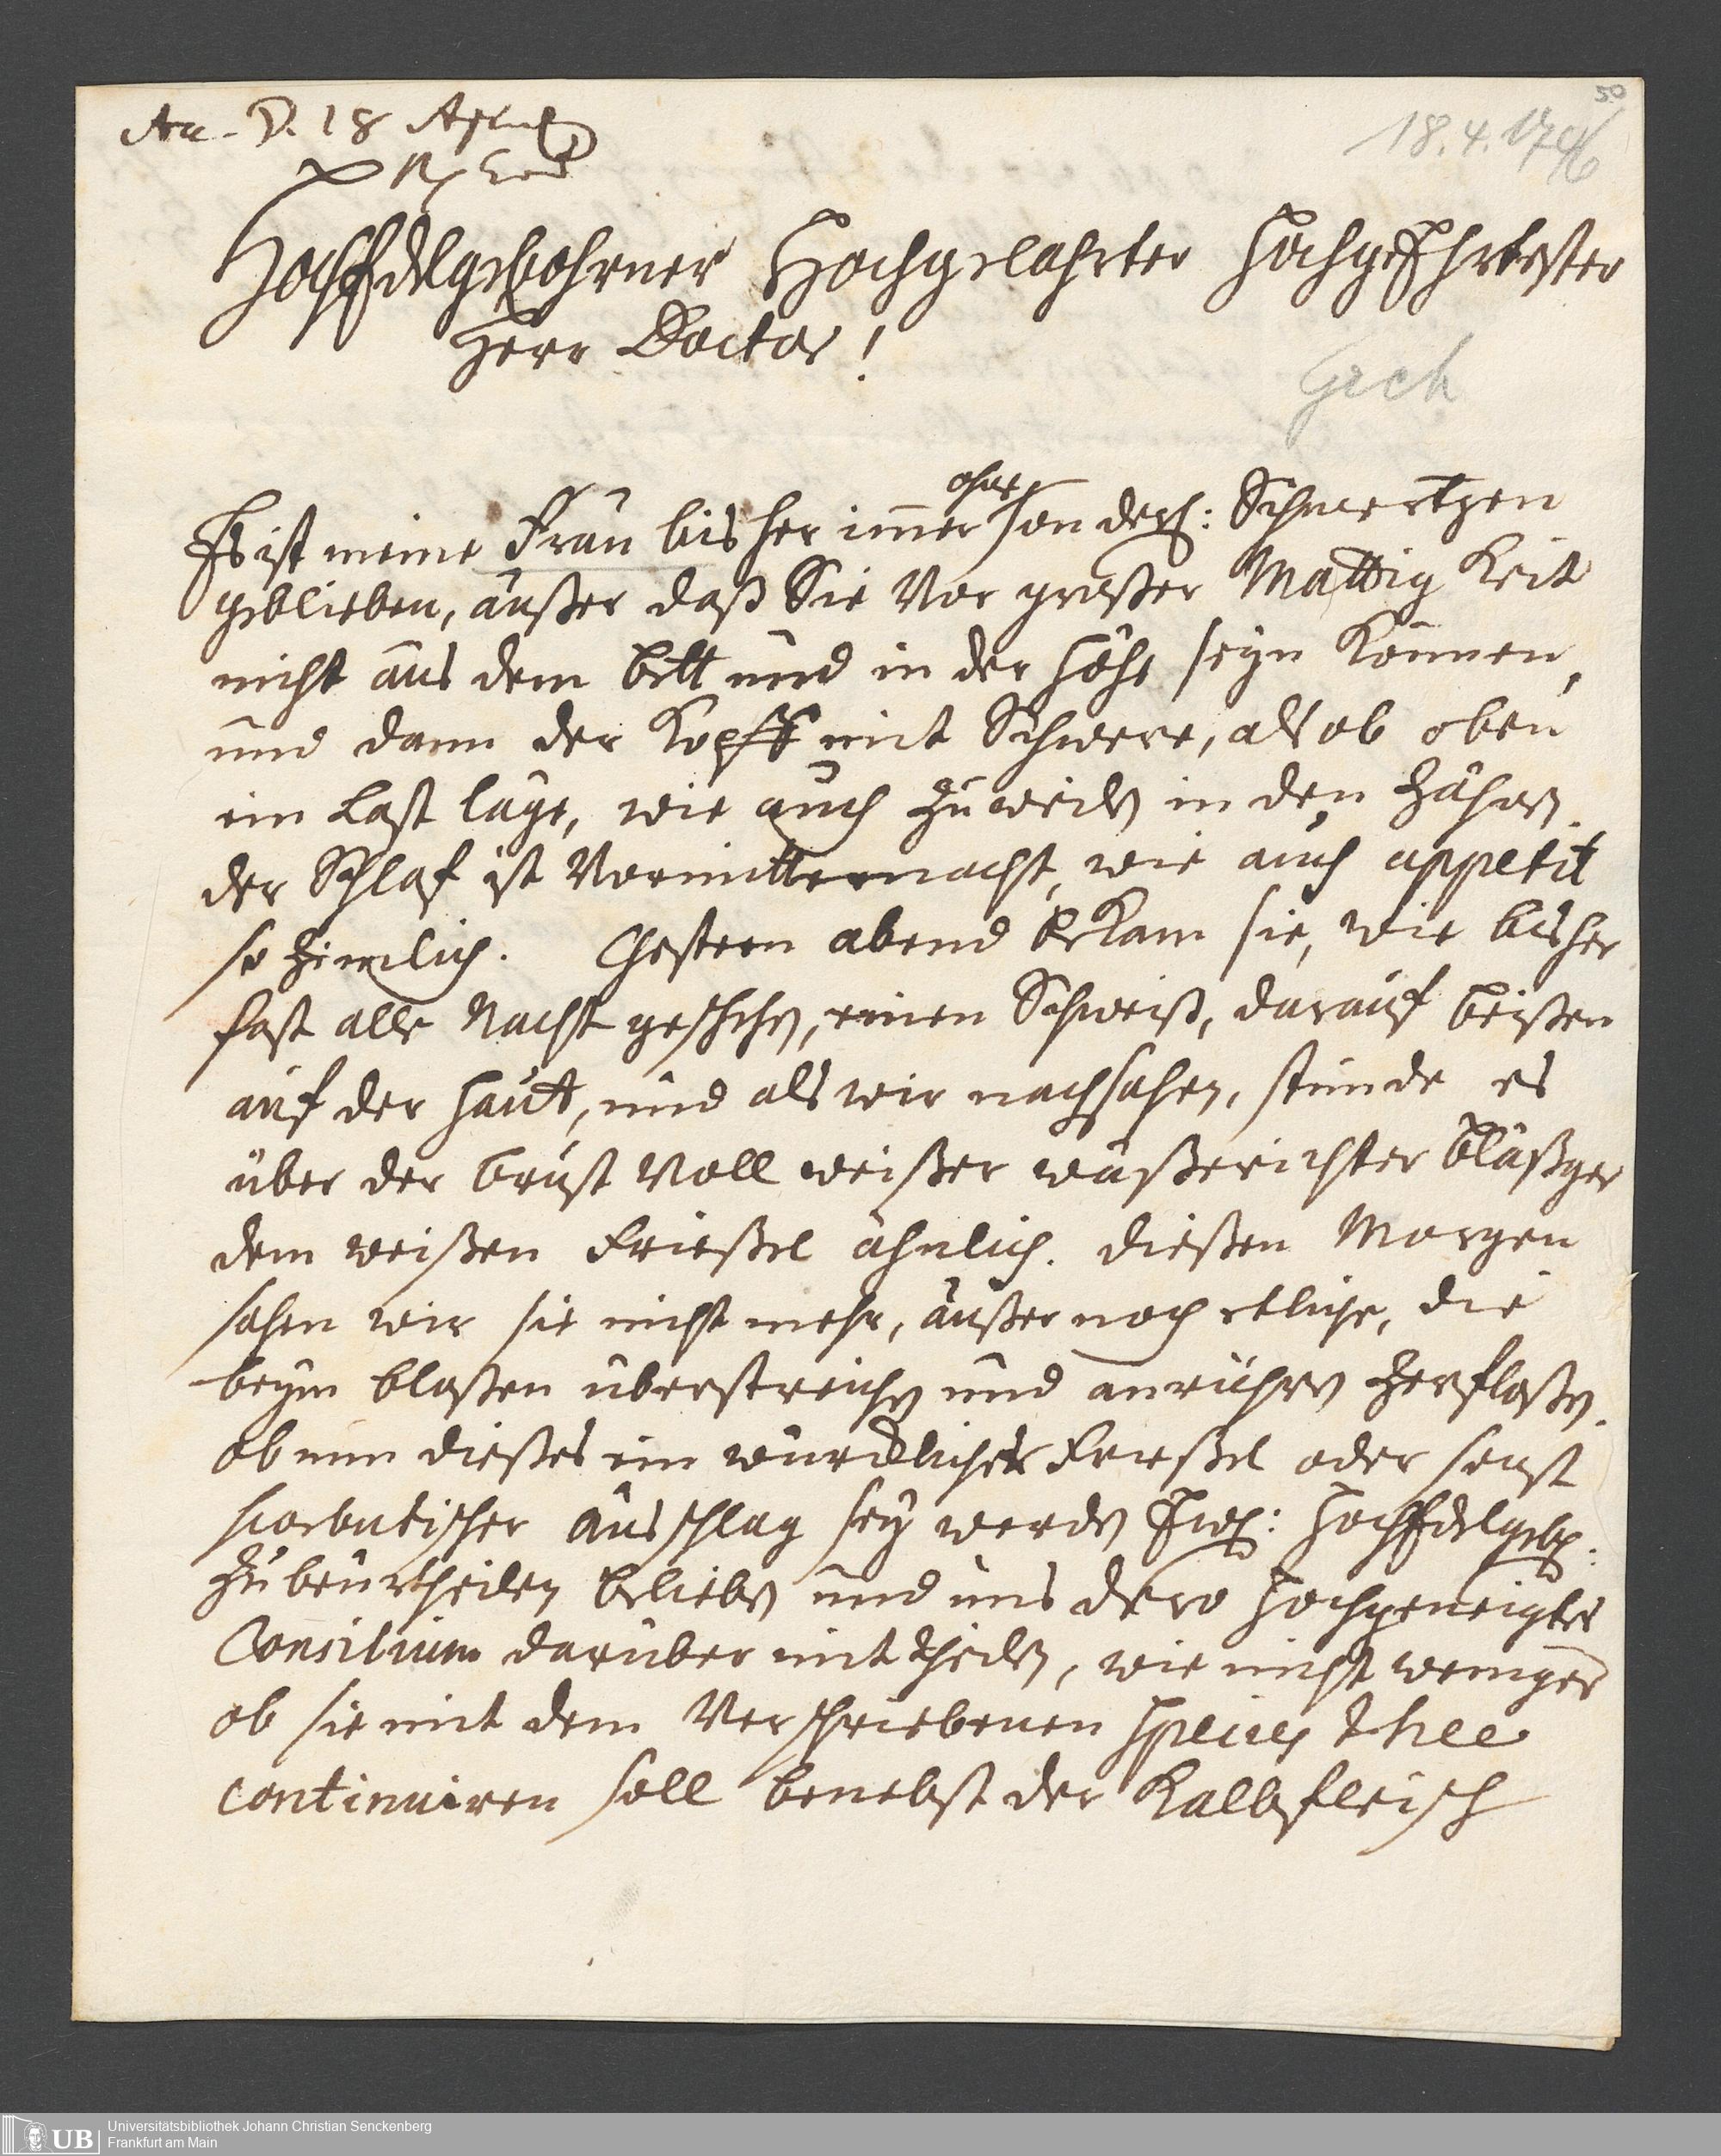 50
18.4.1746
D. 18 Aprill
HochEdelgebohrner Hochgelahrter HochgeEhrtester
Herr Doctor!
Gech
Es ist meine Frau bisher immer ohne sonderl: Schmertzen
geblieben, außer daß Sie vor großer Mattig Keit
nicht aus dem bett und in der Höhe seyn Können,
und dann der Kopff mit Schwere, als ob oben
ein Last läge, wie auch zuweilen in den Zähnen.
der Schlaf ist vormitternacht, wie auch appetit
so zimlich. Gestern abend beKam sie, wie bisher
fast alle Nacht geschehen, einen Schweiß, darauf beißen
auf der Haut, und als wir nachsahen, stunde es
über der brust voll weißer wäßerichter bläßger
dem weißen Frießel ähnlich. dießen Morgen
sahen wir sie nicht mehr, außer noch etliche, die
beym bloßen überstreichen und anrühren zerfloßen.
ob nun dießes ein würcklicher Frießel oder sonst
scorbutischer ausschlag sey werden Ewl: HochEdelgeb.
zu beurtheilen belieben und uns dero Hochgeneigtes
Consilium darüber mittheilen, wie nicht weniger
ob sie mit dem verschriebenen Species thee
continuiren soll benebst der Kalbfleisch
Universitätsbibliothek Johann Christian Senckenberg
Frankfurt am Main
UB